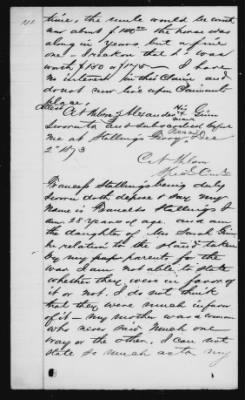 time, the mule would be worth
now about $100.00 the horse was
along in years but a fine
one I reckon that he was
worth $150 or $175 — I have
no interest in this Claim and
do not now live upon Claimants
place.
Alexander his Gin
mark
Sworn to and subscribed before
me at Stallings Georgia Dec
2" 1873
Frances Stallings being duly
sworn doth depose & say My
name is Frances Stallings I
am 28 years of age. and am
the daughter of Mr
In relation to the stand taken
by my parents for the
war I am not able to state
whether they were in favor of
it or not. I do not think
that they were much in favor
of it — my mother was a woman
who never said much one
way or the other. I can not
state so much as to my